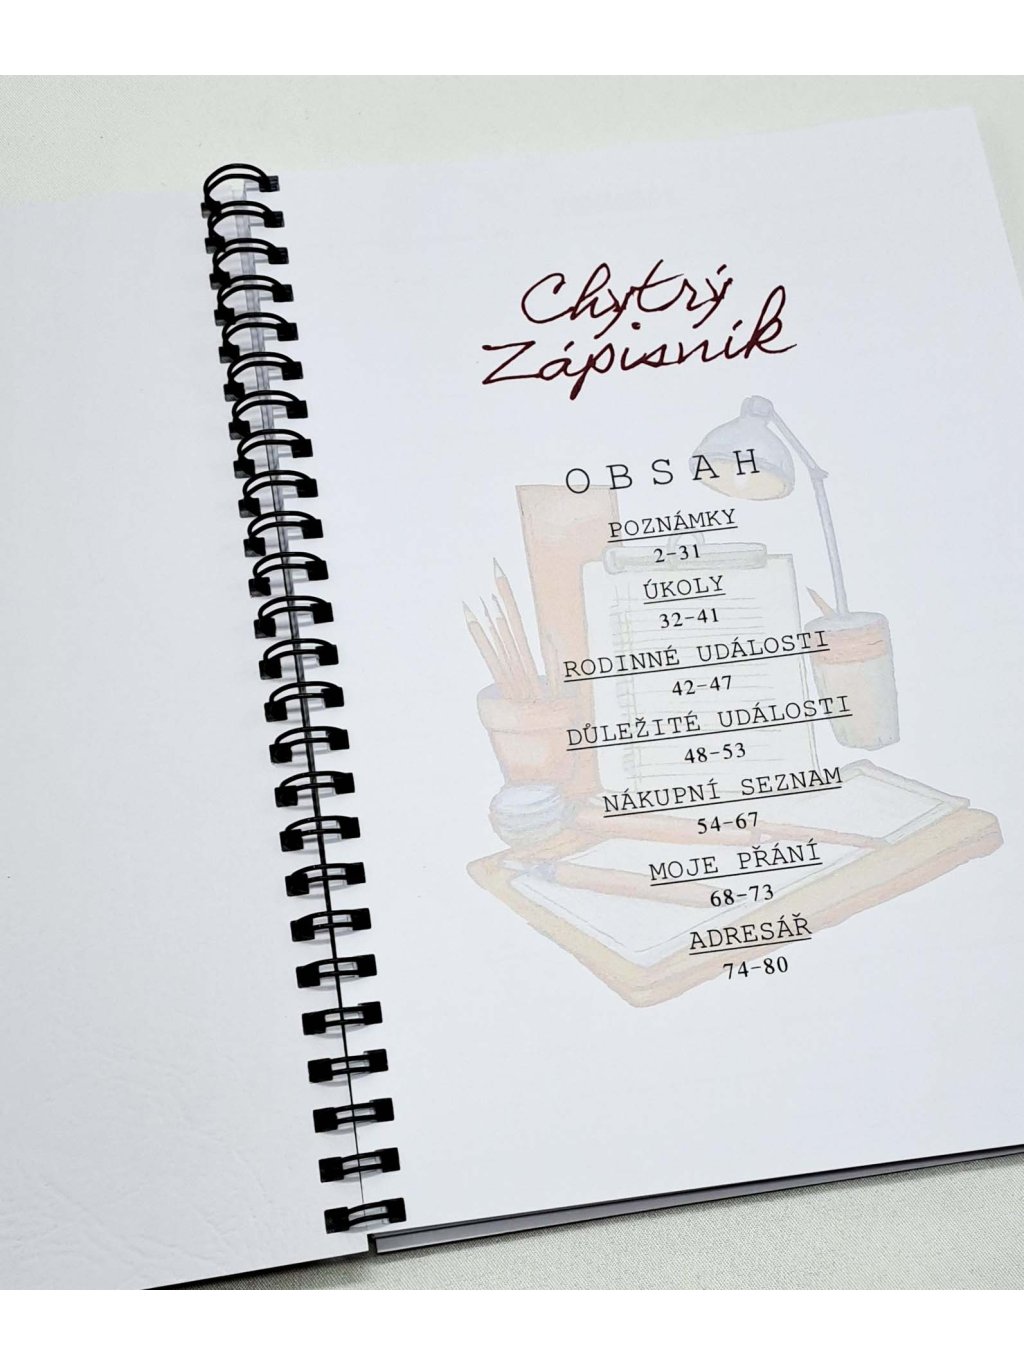 Chytrý
Zápisník
OBSAH
POZNÁMKY
2-31
ÚKOLY
32-41
RODINNÉ UDÁLOSTI
42-47
DŮLEŽITÉ UDÁLOSTI
48-53
NÁKUPNÍ SEZNAM
54-67
MOJE PŘÁNÍ
68-73
ADRESÁŘ
74-80